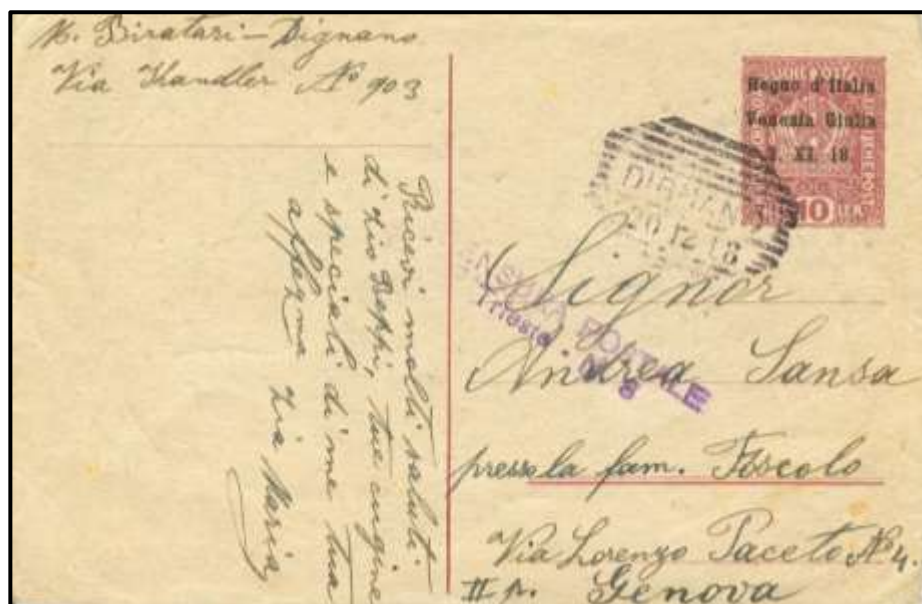 M. Biratari – Dignano
Via Kandler No 903
Ricevi molti saluti
di zio Beppi, tue cugine
e speciali di me tua
affez.ma zia Maria
Regno d'Italia
Venezia Giulia
3. XI. 18.
10
DIGNANO
20 12 18
CENSURA POSTALE
Trieste No 8
Signor
Andrea Sansa
presso la fam. Foscolo
Via Lorenzo Paceto No 4.
II p. Genova